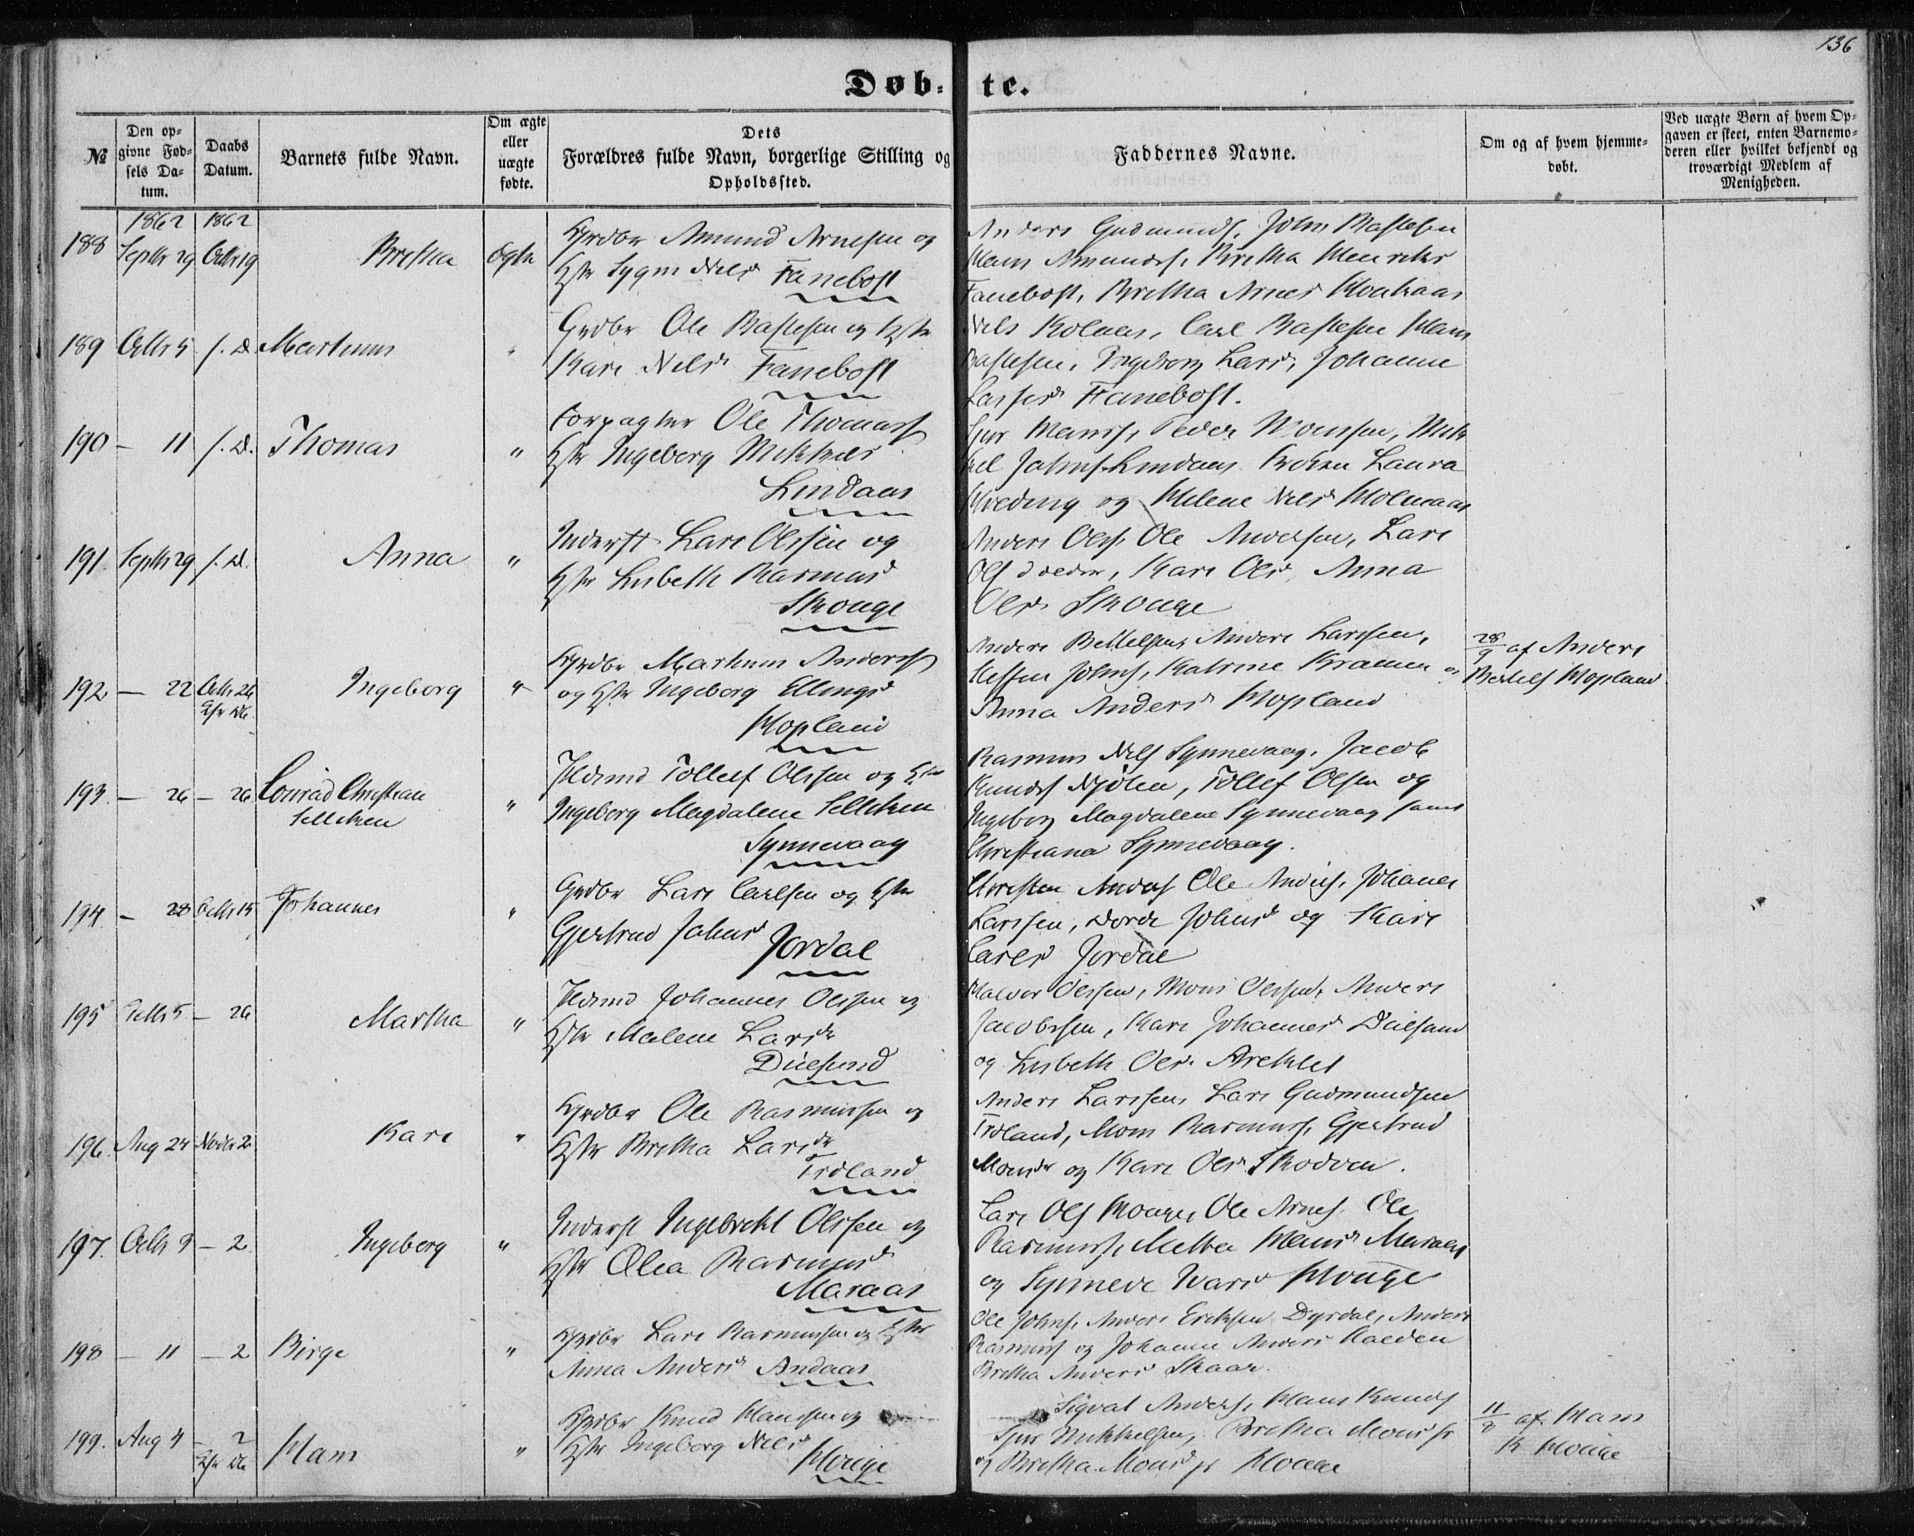 136
Døb-te.
№
Den opgivne Fødsels Datum.
Daabs Datum.
Barnets fulde Navn.
Om ægte eller uægte fødte.
Dets Forældres fulde Navn, borgerlige Stilling og Opholdssted.
Faddernes Navne.
Om og af hvem hjemmedøbt.
Ved uægte Børn af hvem Opgaven er skeet, enten Barnemoderen eller hvilket bekjendt og troværdigt Medlem af Menigheden.
1862 1862
188 Septbr 29 Octbr 19 Britha ægte
Grdbr Amund Arnesen og
Hstr Sygni Nilsd Fanebost
Anders Gudmunds, John Bastesen
Hans Amunds, Britha Henriks
Fanebost, Britha Arnes
189 Octbr 5 s. D. Martinus "
Grdbr Ole Bastesen og Hstr
Kari Nilsd Fanebost
Nils Kolaas, Carl Bastesen Hans
Bastesen, Ingeborg Larsd, Johanne
Lassesd Fanebost.
190 — 11 s. D. Thomas "
Forpagter Ole Thomass
Hstr Ingeborg Mikkels
Lindaas
Sjur Monss, Peder Monsen, Mik
kel Johnss Lindaas Laura
og Helene Nilsd
191. Septbr 29 s. D. Anna "
Inderst Lars Olssen og
Hstr Lisbeth Rasmusd
Skouge
Anders Olss, Ole Andersen, Lars
Kari Olsd, Anna
Olsd Skouge
192 — 22 Octbr 26 Ingeborg "
Grdbr Martinus Anderss
og Hstr Ingeborg Ellingsd
Hopland
Anders Bertelsen, Anders Larssen,
Steffen Johnss, Katrine og
Anna Andersd Hopland
28/9 af Anders
Bertels Hopland
193. — 26 — 26 Conrad Christian
Selleken "
Tollef Olssen og Hstr
Ingeborg Magdalene Selleken
Synnevaag
Rasmus Nils Synnevaag, Jacob
Knuds, Tollef Olsen og
Ingeborg Magdalene Synnevaag samt
Christiana Synnevaag.
194. — 28 Octbr 15 Johannes "
Grdbr Lars Carlsen og Hstr
Gjertrud Johnsd Jordal
Christen Anders Ole Anders, Johanes
Larssen, Dorde Johnsd og Kari
Carlsd Jordal
195 Octbr 5 — 26 Martha "
Johannes Olssen og
Hstr Malene Larsdr
Duesund
Halvor Olssen, Mons Olssen, Anders
Jacobssen, Kari Johannesd Duesund
og Lisbeth Olsd
196. Aug 24 Novbr 2 Kari "
Grdbr Ole Rasmussen og
Hstr Britha Larsdr
Troland
Anders Larssen, Lars Gudmundsen
Troland, Mons Rasmuss, Gjertrud
Monsdr og Kari Olsd Skodven.
197. Octbr 9 — 2. Ingeborg "
Inderst Ingebrekt Olssen og
Hstr Olea Rasmusd
Maraas
Lars Ols Houge, Ole Arnes, Ole
Rasmuss, Hansd Maraas
og Synneve Ivarsd Houge
198 — 11 — 2 Birge "
Grdbr Lars Rasmussen og Hstr
Anna Andersd Andaas
Ole Johns, Anders Eriksen Dyrdal, Anders
Rasmuss og Johanne Anders
Britha Andersd Skaar.
199. Aug 4 — 2 Hans "
Grdbr Knud Hanssen og
Hstr Ingeborg Nilsd
Houge
Sigvat Anders, Hans Knuds
Sjur Mikkelsen, Britha Monsd
og Britha Monsd Houge
11/8 af Hans
K Houge